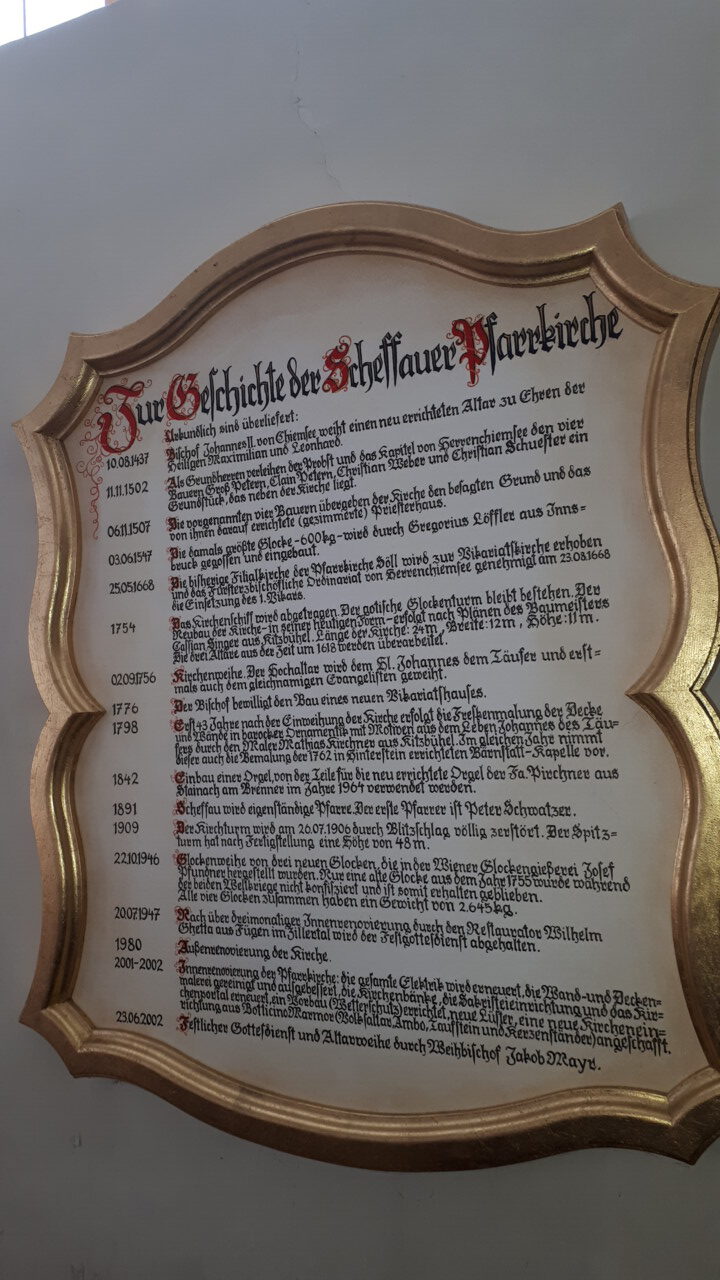 Zur Geschichte der Scheffauer Pfarrkirche
Urkundlich sind überliefert:
10.08.1437 Bischof Johannes II. von Chiemsee weiht einen neu errichteten Altar zu Ehren der
Heiligen Maximilian und Leonhard.
11.11.1502 Als Grundherren verleihen der Probst und das Kapitel von Herrenchiemsee den vier
Bauern Groß Petern, Clain Petern, Christian Weber und Christian Schuester ein
Grundstück, das neben der Kirche liegt.
06.11.1507 Die vorgenannten vier Bauern übergeben der Kirche den besagten Grund und das
von ihnen darauf errichtete (gezimmerte) Priesterhaus.
03.06.1547 Die damals größte Glocke -600kg- wird durch Gregorius Löffler aus Inns=
bruck gegossen und eingebaut.
25.05.1668 Die bisherige Filialkirche der Pfarrkirche Söll wird zur Vikariatskirche erhoben
und das Fürsterzbischöfliche Ordinariat von Herrenchiemsee genehmigt am 23.08.1668
die Einsetzung des 1. Vikars.
1754 Das Kirchenschiff wird abgetragen. Der gotische Glockenturm bleibt bestehen. Der
Neubau der Kirche - in seiner heutigen Form - erfolgt nach Plänen des Baumeisters
Cassian Singer aus Kitzbühel. Länge der Kirche: 24m, Breite: 12m, Höhe: 11m.
Die drei Altäre aus der Zeit um 1618 werden überarbeitet.
02.09.1756 Kirchenweihe. Der Hochaltar wird dem Hl. Johannes dem Täufer und erst=
mals auch dem gleichnamigen Evangelisten geweiht.
1776 Der Bischof bewilligt den Bau eines neuen Vikariatshauses.
1798 Erst 43 Jahre nach der Einweihung der Kirche erfolgt die Freskenmalung der Decke
und Wände in barocker Ornamentik mit Motiven aus dem Leben Johannes des Täu=
fers durch den Maler Mathias Kirchner aus Kitzbühel. Im gleichen Jahr nimmt
dieser auch die Bemalung der 1762 in Hinterstein errichteten Bärnstatt-Kapelle vor.
1842 Einbau einer Orgel, von der Teile für die neu errichtete Orgel der Fa. Pirchner aus
Stainach am Brenner im Jahre 1964 verwendet werden.
1891 Scheffau wird eigenständige Pfarre. Der erste Pfarrer ist Peter Schwatzer.
1909 Der Kirchturm wird am 26.07.1906 durch Blitzschlag völlig zerstört. Der Spitz=
turm hat nach Fertigstellung eine Höhe von 48m.
22.10.1946 Glockenweihe von drei neuen Glocken, die in der Wiener Glockengießerei Josef
Pfundner hergestellt wurden. Nur eine alte Glocke aus dem Jahr 1755 wurde während
der beiden Weltkriege nicht konfisziert und ist somit erhalten geblieben.
Alle vier Glocken zusammen haben ein Gewicht von 2.645kg.
20.07.1947 Nach über dreimonatiger Innenrenovierung durch den Restaurator Wilhelm
Ghetta aus Fügen im Zillertal wird der Festgottesdienst abgehalten.
1980 Außenrenovierung der Kirche.
2001-2002 Innenrenovierung der Pfarrkirche: die gesamte Elektrik wird erneuert, die Wand- und Decken=
malerei gereinigt und ausgebessert, die Kirchenbänke, die Sakristeieinrichtung und das Kir=
chenportal erneuert, ein Vorbau (Wetterschutz) errichtet, neue Lüster, eine neue Kirchenein=
richtung aus Botticino Marmor (Volksaltar, Ambo, Taufstein und Kerzenständer) angeschafft.
23.06.2002 Festlicher Gottesdienst und Altarweihe durch Weihbischof Jakob Mayr.